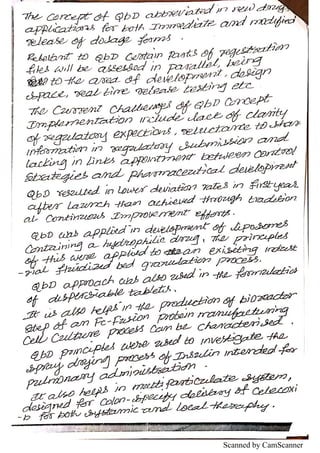 The concept of QbD abbreviated in new drug
applications for both Immediate and modified
release of dosage forms.
Relevant to QbD certain parts of registration
files will be assessed in parallel, being
to the area of development. design
space, real time release testing etc
The Current Challenges of QbD Concept
Implementation include lack of clarity
of regulatory expections, reluctance to share
information in regulatory submission and
lacking in links appointment between control
strategies and pharmaceutical development
QbD resulted in lower deviation rates in first year
after launch than achieved through tradition
al Continuous Improvement efforts.
QbD was applied in development of liposomes
Containing a hydrophilic drug, The principles
of this were applied to an exisiting indust
-rial fluidized bed granulation process.
QbD approach was also used in the formulation
of dispersiable tablets.
It is also helps in the production of bioreactor
step of an Fc-Fusion protein manufacturing
Cell Culture process can be characterised.
QbD principles were used to investigate the
spray drying process of Insulin intended for
pulmonary administration.
It also helps in multiparticulate system,
designed for Colon-specify delivery of Celecoxi
-b for both systamic and local theraphy.
Scanned by CamScanner